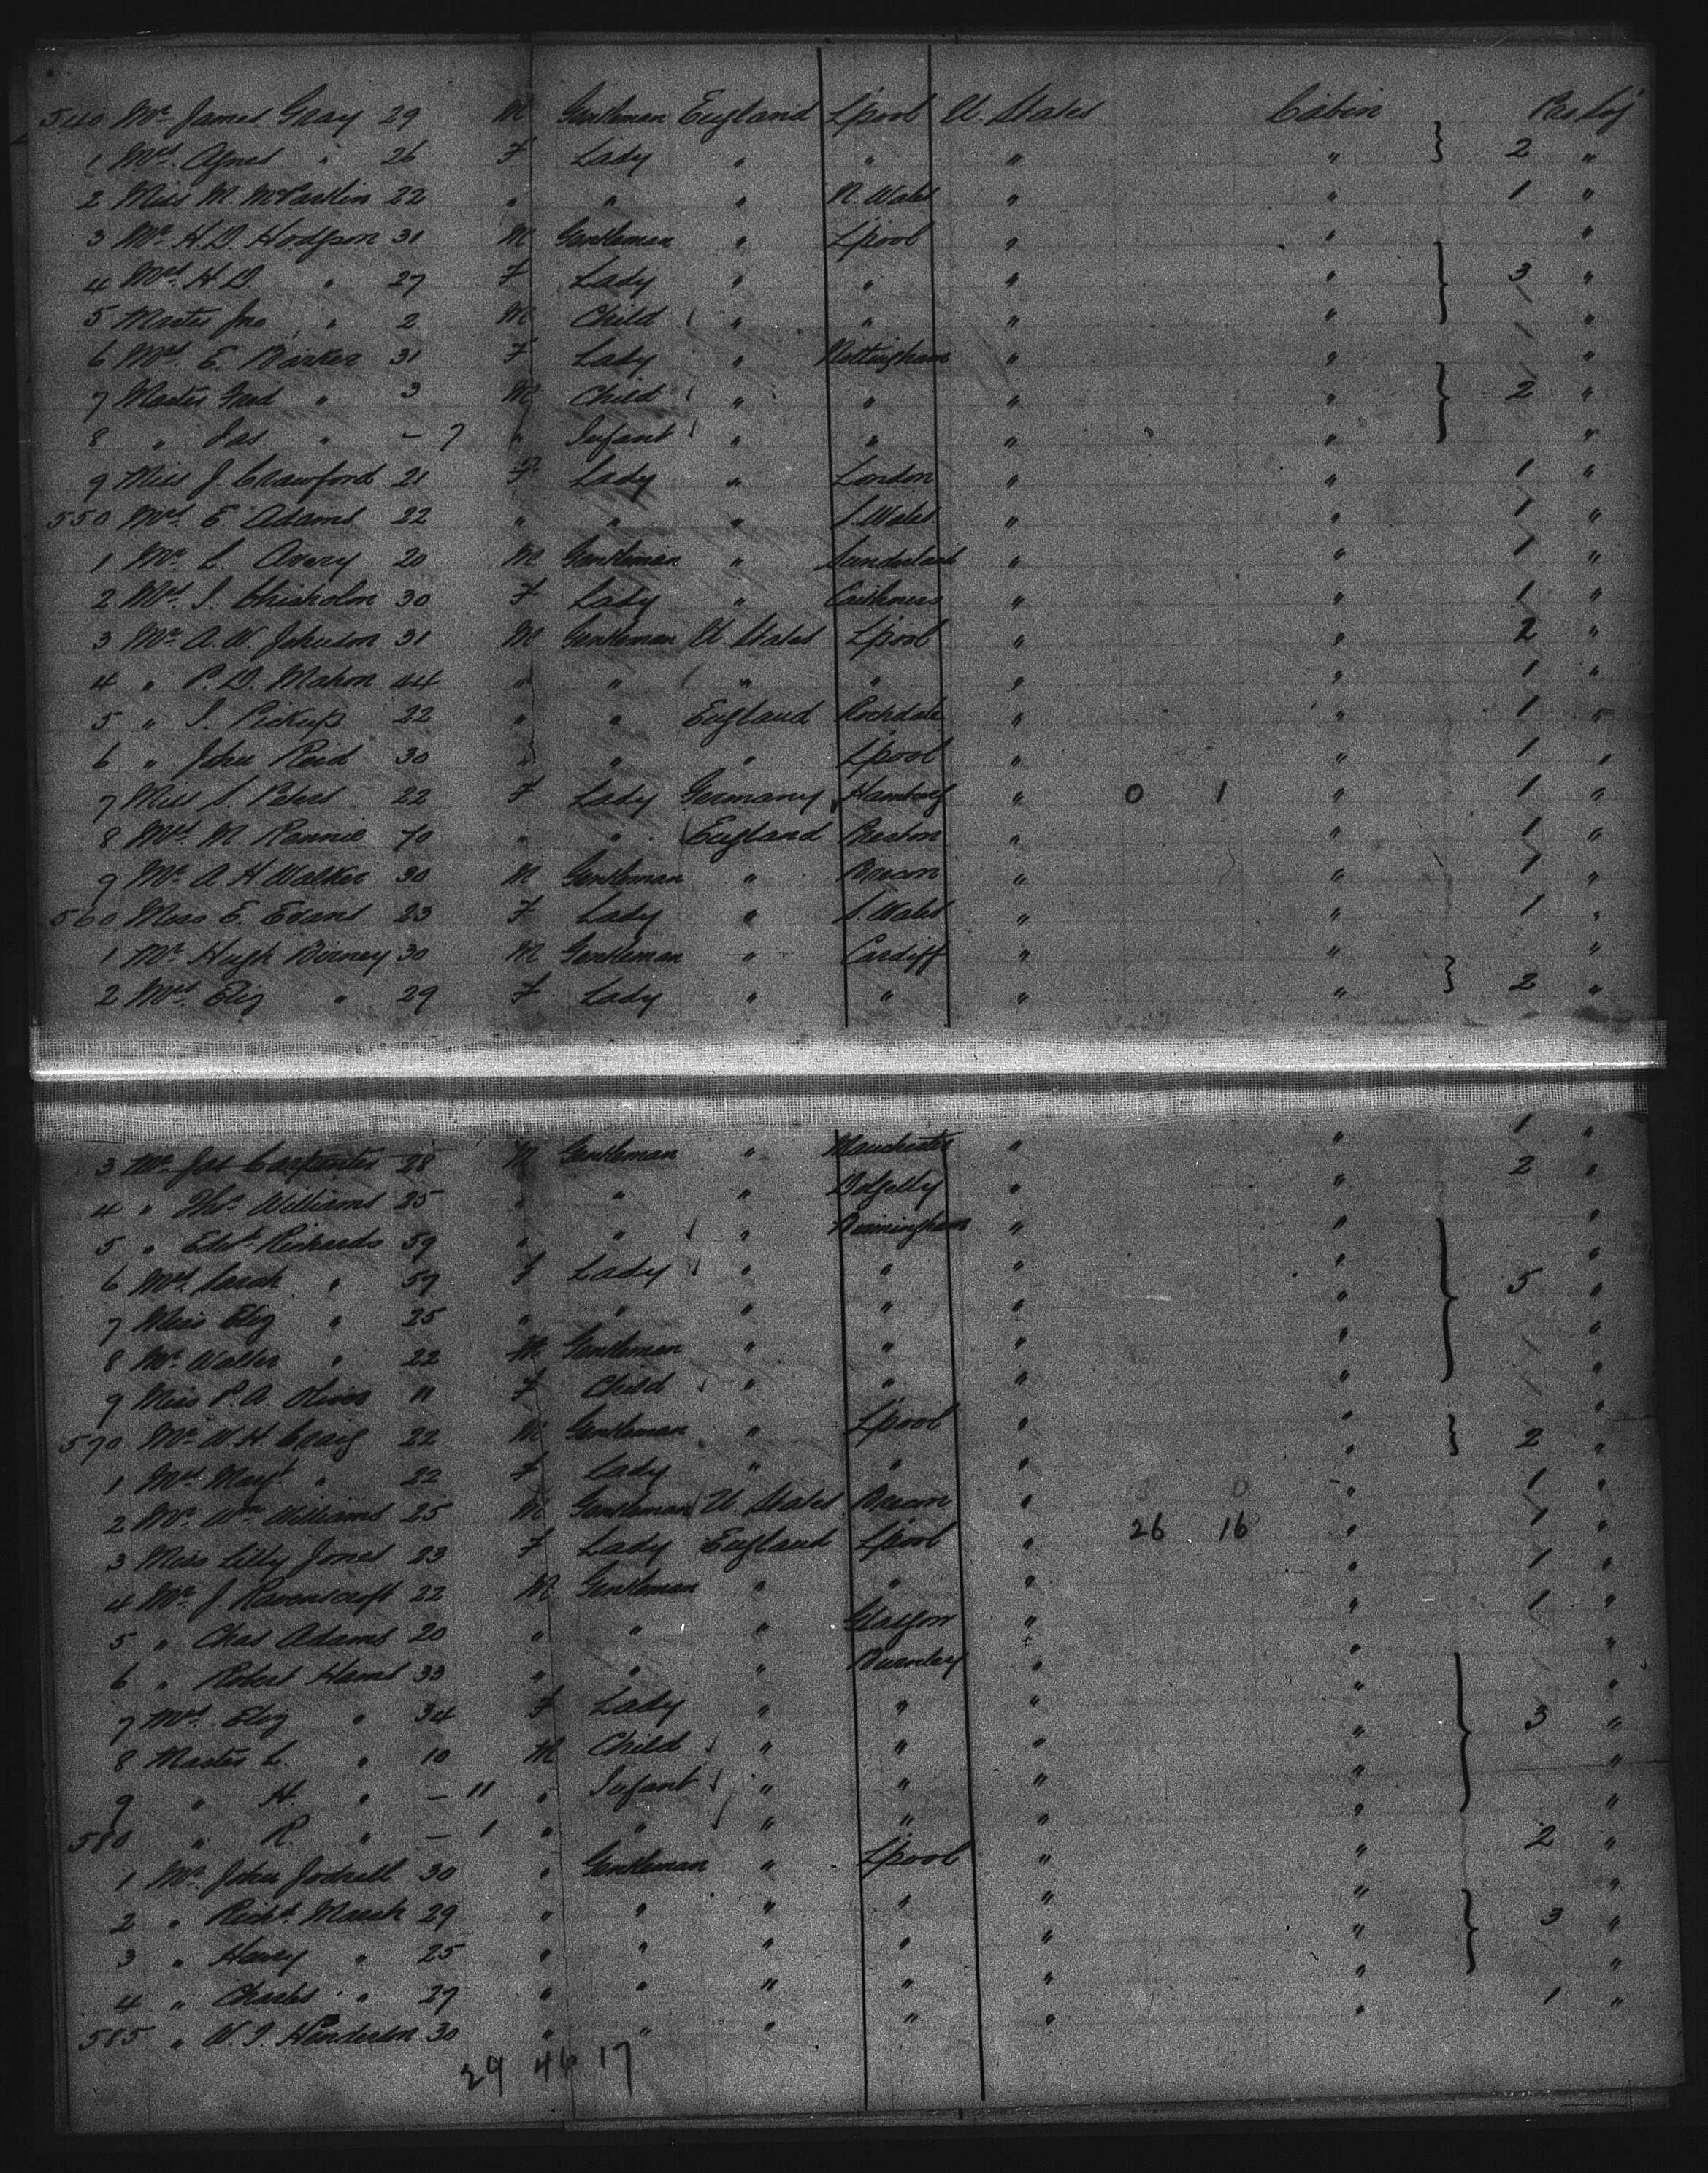 540 Mr. James Gray 29 M Gentleman England L'pool U. States Cabin Pro Soj
1 Mrs. Agnes " 26 F Lady " " " " } 2 "
2 Miss M. McParklin 22 " " " N. Wales " " 1 "
3 Mr. H.D. Hodgson 31 M Gentleman " L'pool " " "
4 Mrs. H.D. " 27 F Lady " " " " } 3 "
5 Master Jno " 2 M Child " " " " "
6 Mrs. E. Barker 31 F Lady " Nottingham " " "
7 Master Fred " 3 M Child " " " " } 2 "
8 " Jas " - 7 " Infant " " " " "
9 Miss J. Crawford 21 F Lady " London " " 1 "
550 Mrs. E. Adams 22 " " " S. Wales " " 1 "
1 Mr. L. Avery 20 M Gentleman " Sunderland " " 1 "
2 Mrs. J. Chisholm 30 F Lady " Caithness " " 1 "
3 Mr. A.W. Johnson 31 M Gentleman U. States L'pool " " 2 "
4 " P.D. Mahon 44 " " " " " " 1 "
5 " J. Pickup 22 " " England Rochdale " " 1 "
6 " John Reid 30 " " " L'pool " " 1 "
7 Miss S. Peters 22 F Lady Germany Hamburg " 0 1 " 1 "
8 Mrs. M. Rennie 70 " " England Preston " " 1 "
9 Mr. A H Walker 30 M Gentleman " Brecon " " 1 "
560 Miss E. Evans 23 F Lady " S. Wales " " 1 "
1 Mr. Hugh Birney 30 M Gentleman " Cardiff " " "
2 Mrs. Eliz " 29 F Lady " " " " } 2 "
3 Mr. Jas Carpenter 28 M Gentleman " Manchester " " 1 "
4 " Thos. Williams 25 " " " Dolgelly " " 2 "
5 " Edwd. Richards 59 " " " Birmingham " " "
6 Mrs. Sarah " 59 F Lady " " " " } 5 "
7 Miss Eliz " 25 " " " " " " "
8 Mr. Walter " 22 M Gentleman " " " " "
9 Miss P.A. Oliver 11 F Child " " " " "
570 Mr. W.H. Craig 22 M Gentleman " L'pool " " } 2 "
1 Mrs. Magt. " 22 F Lady " " " " "
2 Mr. Wm Williams 25 M Gentleman U. States Brecon " " 1 "
3 Miss Lilly Jones 23 F Lady England L'pool " 26 16 " 1 "
4 Mr. J. Ravenscroft 22 M Gentleman " " " " 1 "
5 " Chas Adams 20 " " " Glasgow " " 1 "
6 " Robert Hames 33 " " " Burnley " " "
7 Mrs. Eliz " 34 F Lady " " " " } 3 "
8 Master L. " 10 M Child " " " " "
9 " H. " - 11 " Infant " " " " "
580 " R. " - 1 " " " " " " "
1 Mr. John Jodrell 30 " Gentleman " L'pool " " 2 "
2 " Richd. Marsh 29 " " " " " " "
3 " Henry " 25 " " " " " " } 3 "
4 " Charles " 27 " " " " " " "
585 " W.J. Henderson 30 " " " " " " 1 "
29 46 17